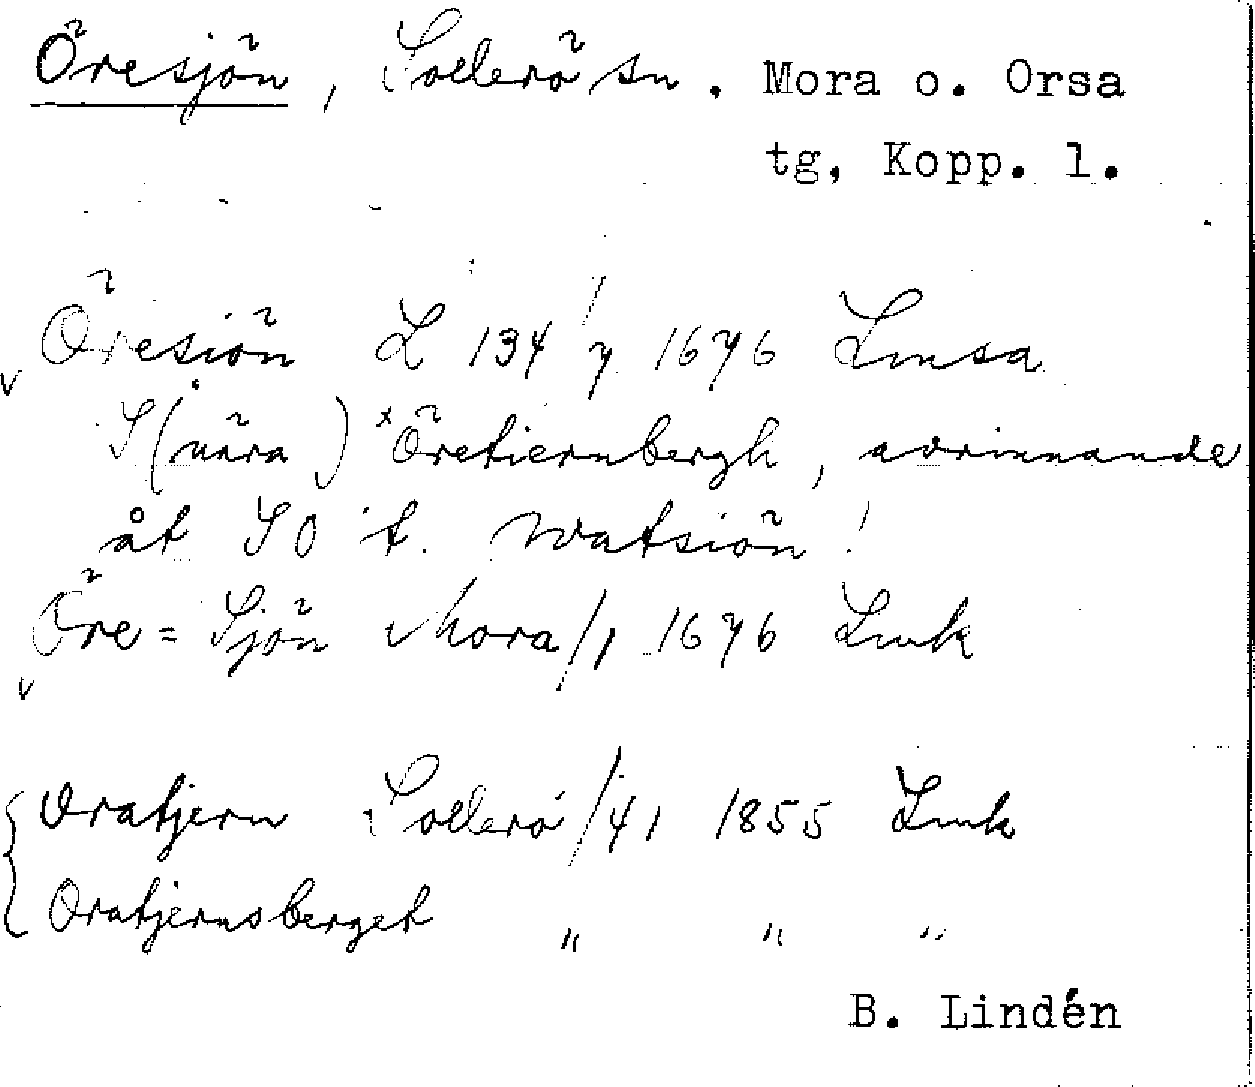 Öresjön, Sollerö sn. Mora o. Orsa
tg, Kopp. l.
Öresiön L 134/7 1676 Lmsa
S (nära) ˣÖretiernbergh, avrinnande
åt SO t. Watsiön!
Öre=Sjön Mora/1 1676 Lmk
Oratjern Sollerö/41 1855 Lmk
Oratjernsberget " " "
B. Lindén